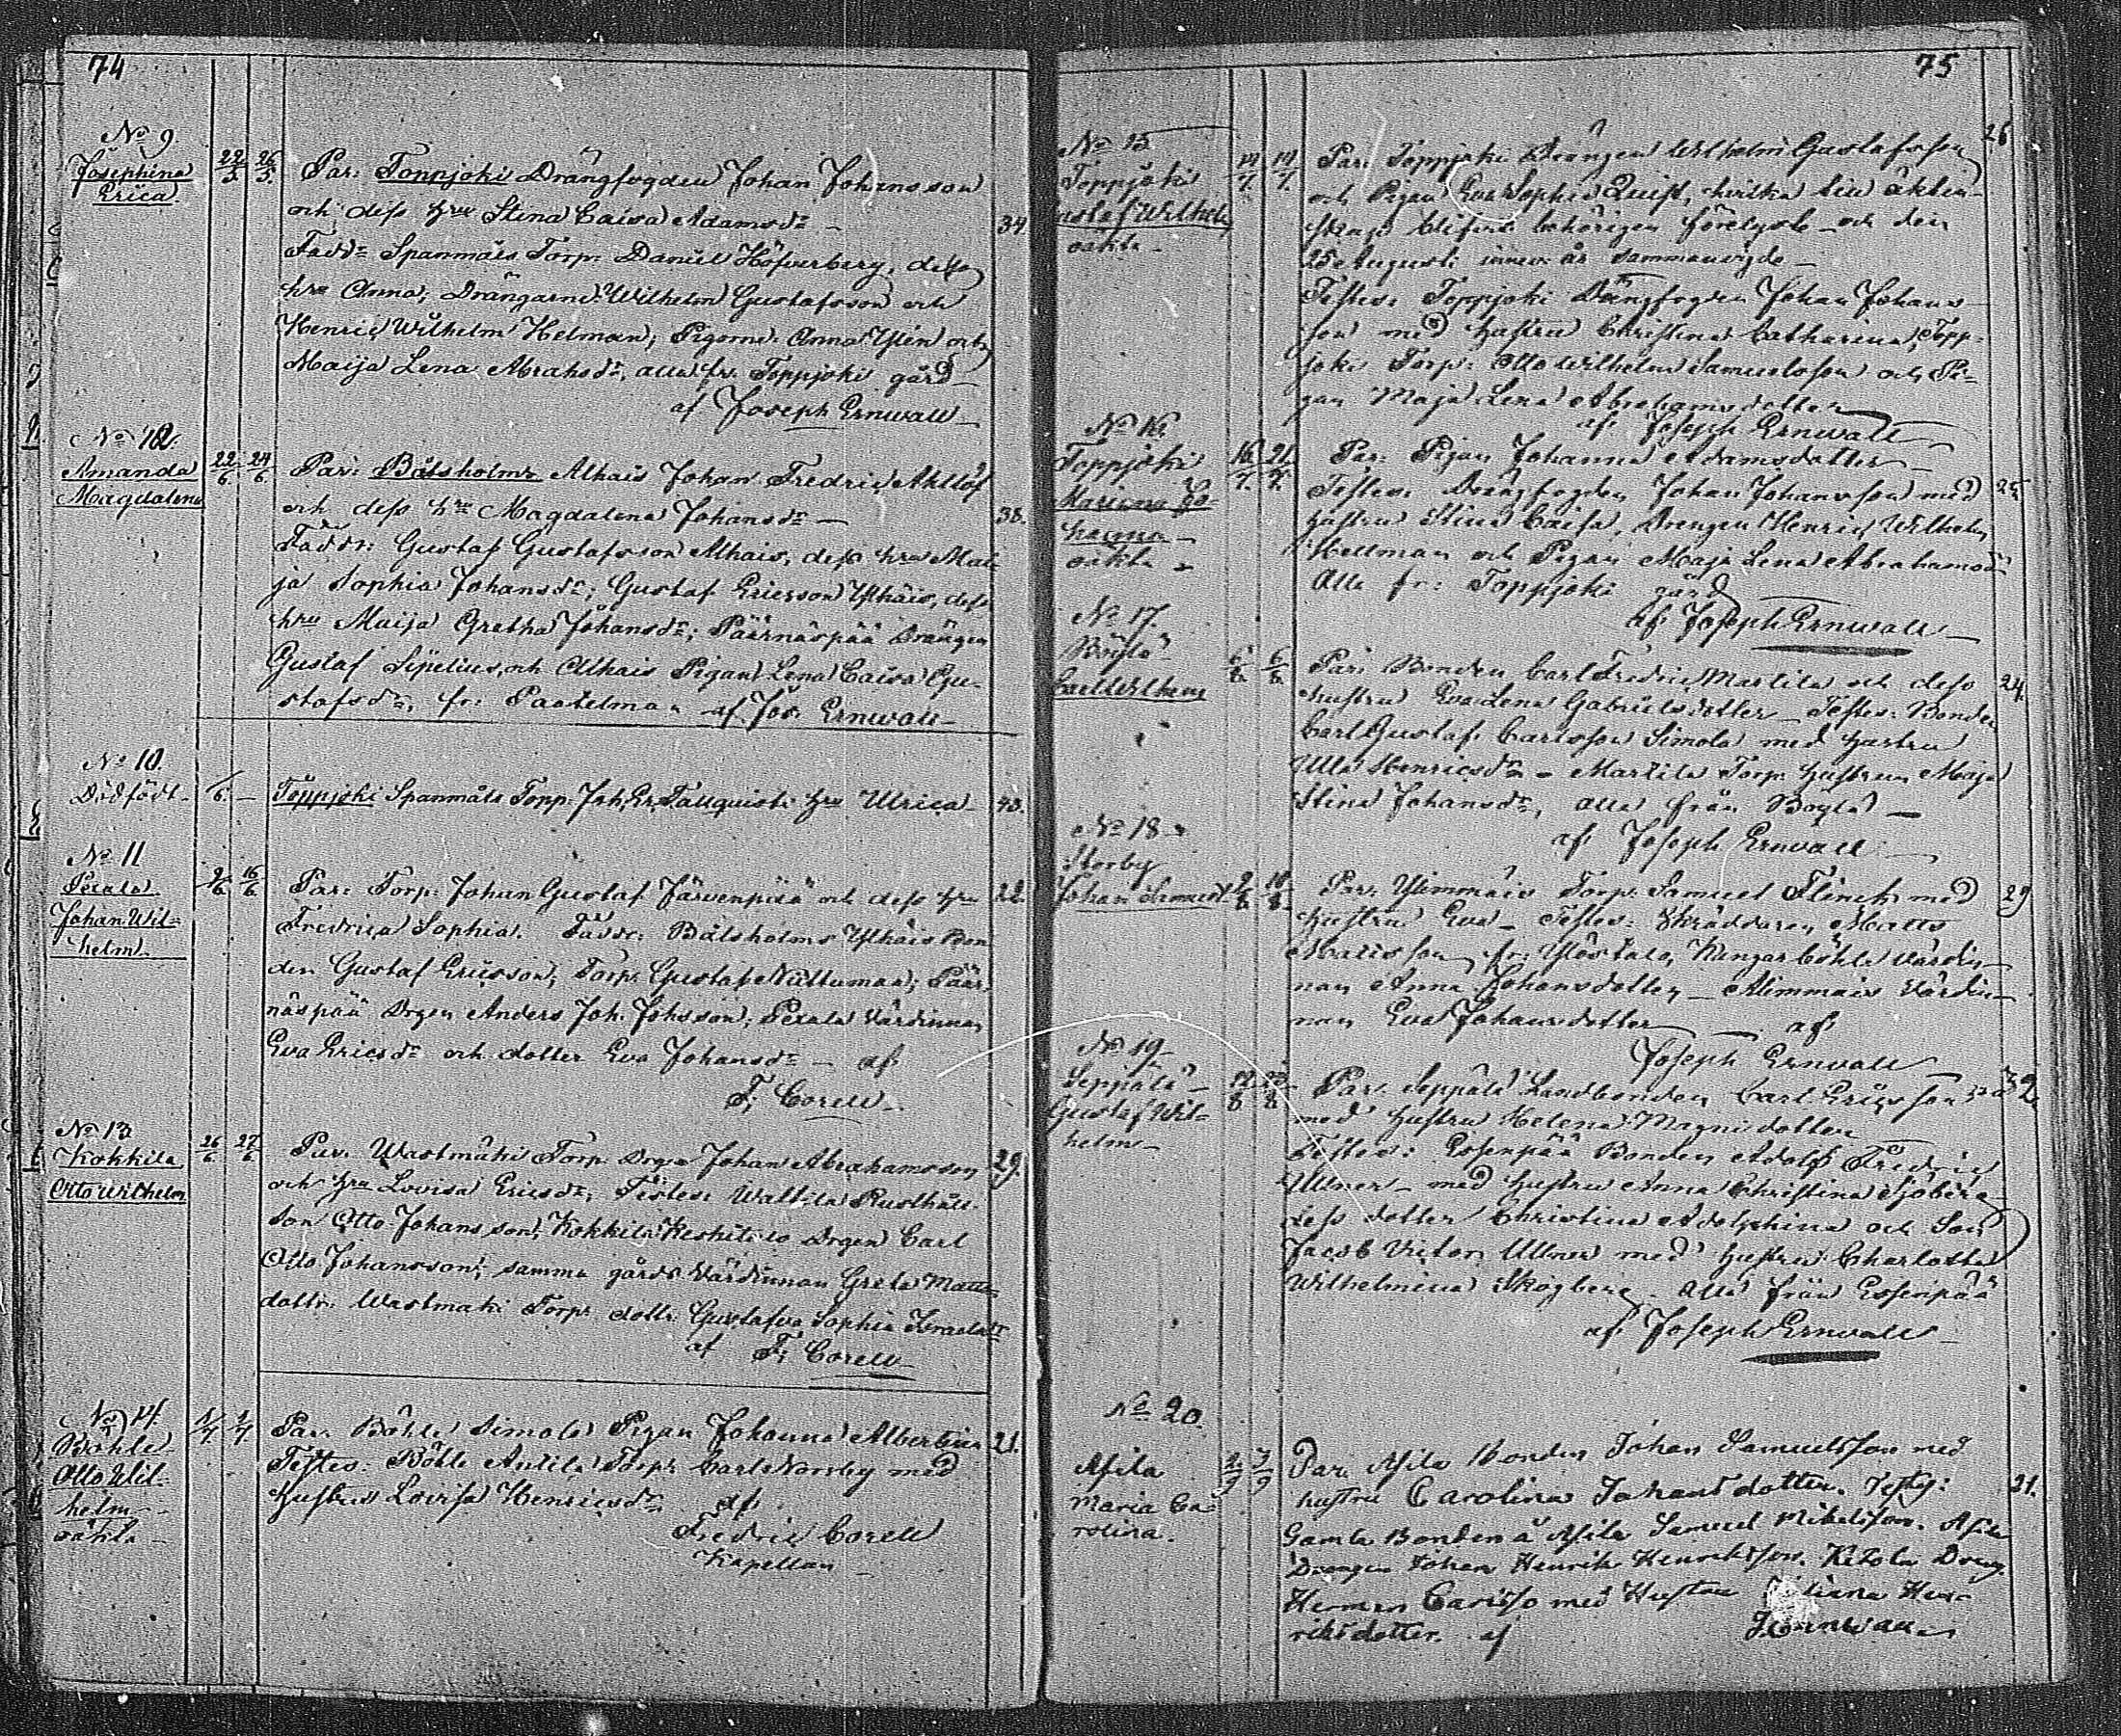 74
No 9
Josephina
Erica
22/5. 26/5.
Par: Toppjoki Drängfogden Johan Johansson
och dess hru Stina Caisa Adamsdr – 34.
Faddr Spanmåls Torp: Daniel Höfverberg, dess
hru Anna, Drängarne Wilhelm Gustafsson och
Henric Wilhelm Helman; Pigorne Anna och
Maija Lena Abrahsdr, alla fr. Toppjoki gård
af Joseph Ernwall
No 12.
Amanda
Magdalena
22/6. 24/6.
Par: Bålsholms Alhais Johan Fredric Ahllöf
och dess hru Magdalena Johansdr – 38.
Faddr: Gustaf Gustafsson Alhais, dess hru Mai-
ja Sophia Johansdr; Gustaf Ericsson Ylhäis, dess
hru Maija Gretha Johansdr; Päärnäspää Drängen
Gustaf Sipelius, och Alhais Pigan Lena Caisa Gu-
stafsdr, fr: af Jos. Ernwall
No 10.
Dödfödt –
/6. –
Toppjoki Spanmåls Torp: Joh. Er. Tallquists hru Ulrica 43.
No 11
Perälä
Johan Wil-
helm
9/6 16/6
Par: Torp: Johan Gustaf Järvenpää och dess hru 22.
Fredrica Sophia. Faddr: Bålsholms Ylhäis Bon
den Gustaf Ericsson, Torp: Gustaf Päär-
näspää Drgen Anders Joh. Johsson; Perälä Värdinnan
Eva Ericsdr och dotter Eva Johansdr – af
F; Corell
No 13
Kokkila
Otto Wilhelm
26/6. 27/6.
Par. Wastmäki Torp. Drgn Johan Abrahamsson, 29.
och hru Lovisa Ericsdr, Testes: Waltila Rusthåls
son Otto Johansson; Kokkila Keskitalo Drgen Carl
Otto Johansson; samma gårds Värdinnan Greta Matts-
dottr. Wastmäki Torps dottr: Gustafva Sophia Israelsdr
af F; Corell
No 14.
Böhle
Otto Wil-
helm
oäkta –
1/7. 1/7.
Par. Böhle Simola Pigan Johanna Albertina 21.
Testes: Böhle Anttila Torp: Carl Norrby med
hustru Lovisa Henricsdr af
Fredric Corell
Kapellan
75
No 15
Toppjoki
Gustaf Wilhelm
oäkta –
14/7. 14/7.
Par: Toppjoki Drängen Wilhelm Gustafsson 26
och Pigan Eva Sophia Quist, hvilka till äkten-
skap blifvit behörigen förelyste och den
25 Augusti innev. år sammanvigde –
Testes: Toppjoki Drängfogden Johan Johans-
son med hustru Christina Catharina, Topp-
joki Torp: Otto Wilhelm Samuelsson och Pi-
gan Maja Lena Abrahamsdotter
af Joseph Ernwall
No 16.
Toppjoki
Mariana Jo-
hanna –
oäkta –
16/7. 21/7.
Par: Pigan Johanna Adamsdotter –
Testes: Drängfogden Johan Johansson med 25
hustru Stina Caisa, Drengen Henric Wilhelm
Hellman och Pigan Maja Lena Abrahamsdr
Alla fr: Toppjoki gård
af Joseph Ernwall
No 17.
Böylä
Carl Wilhelm
6/8. 6/8.
Par: Bonden Carl Fredric Martila och dess 24.
hustru Eva Lena Gabrielsdotter – Testes: Bonden
Carl Gustaf Carlsson Simola med hustru
Ulla Henricsdr – Martila Torp: hustrun Maja
Stina Johansdr, alla från Böylä –
af Joseph Ernwall
No 18
Storby
Johan Samuel
Par: Ylimmäis Torp: Samuel Flinck med 29
hustru Eva – Testes: Skräddaren Matts
Mattsson, fr: Ylöstalo, Kungarböhle värdin-
nan Anna Johansdotter – Alimmais Värdin-
nan Eva Johansdotter – af
Joseph Ernwall
No 19
Seppälä –
Gustaf Wil-
helm –
Par: Seppälä Landbonden Carl Ericsson 32
med hustru Helena Magnidotter
Testes: Essenpää Bonden Adolf Fredric
Ullner – med hustru Anna Christina Sjöberg
dess dotter Christina Adolphina och Son
Jacob Victor Ullner med hustru Charlotta
Wilhelmina Skogberg. Alla från Essenpää
af Joseph Ernwall
No 20.
Afila
Maria Ca-
rolina.
2/9 3/9
Par. Afila Bonden Johan Samuelsson med
hustru Carolina Johansdotter. Testes: 21.
Gamla Bonden å Afila Samuel Mikelsson. Afila
Drengen Johan Henrik Henriksson. Kitola Dreng
Herman Carlsso med Hustru Hen-
riksdotter. af J. Ernwall